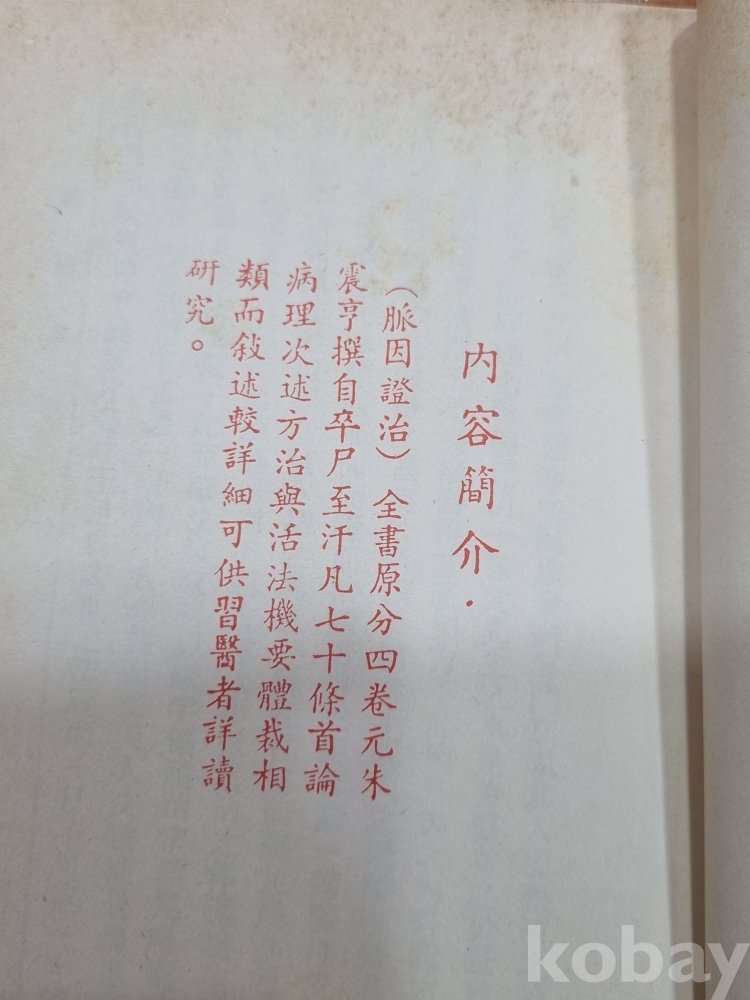 內容簡介．
（脈因證治）全書原分四卷元朱
震亨撰自卒尸至汗凡七十條首論
病理次述方治與活法機要體裁相
類而敍述較詳細可供習醫者詳讀
研究。
kobay